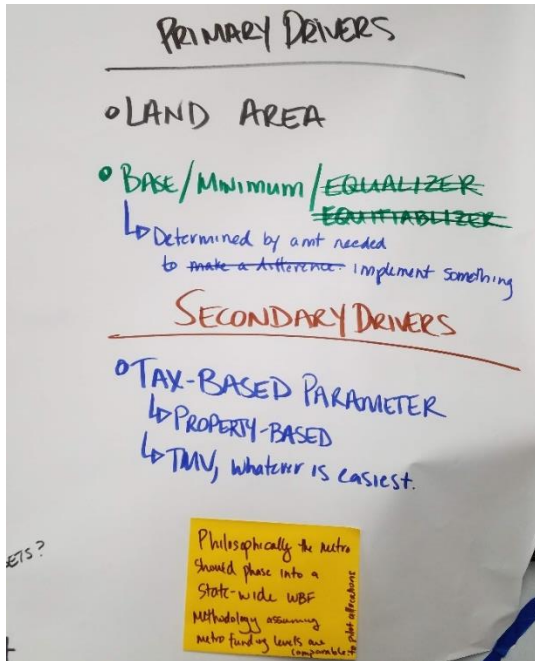 PRIMARY DRIVERS
LAND AREA
BASE/MINIMUM/EQUALIZER
EQUITIABLIZER
Determined by amt needed
to make a difference. implement something
SECONDARY DRIVERS
TAX-BASED PARAMETER
PROPERTY-BASED
TMV, whatever is easiest.
ETS?
Philosophically the metro
should phase into a
State-wide WBF
Methodology assuming
metro funding levels are
comparable to pilot allocations